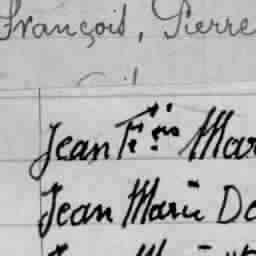 François, Pierre
Jean Fçois Mar
Jean Marie Do